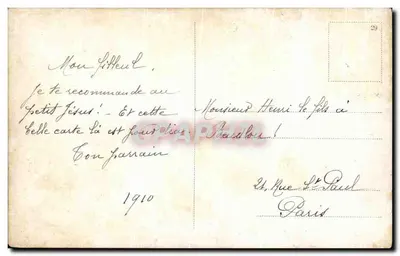 29
Mon filleul,
Je te recommande au
petit Jésus! - Et cette
belle carte là est pour
Ton parrain
1910
Monsieur Henri le fils à
24, Rue St Paul
Paris